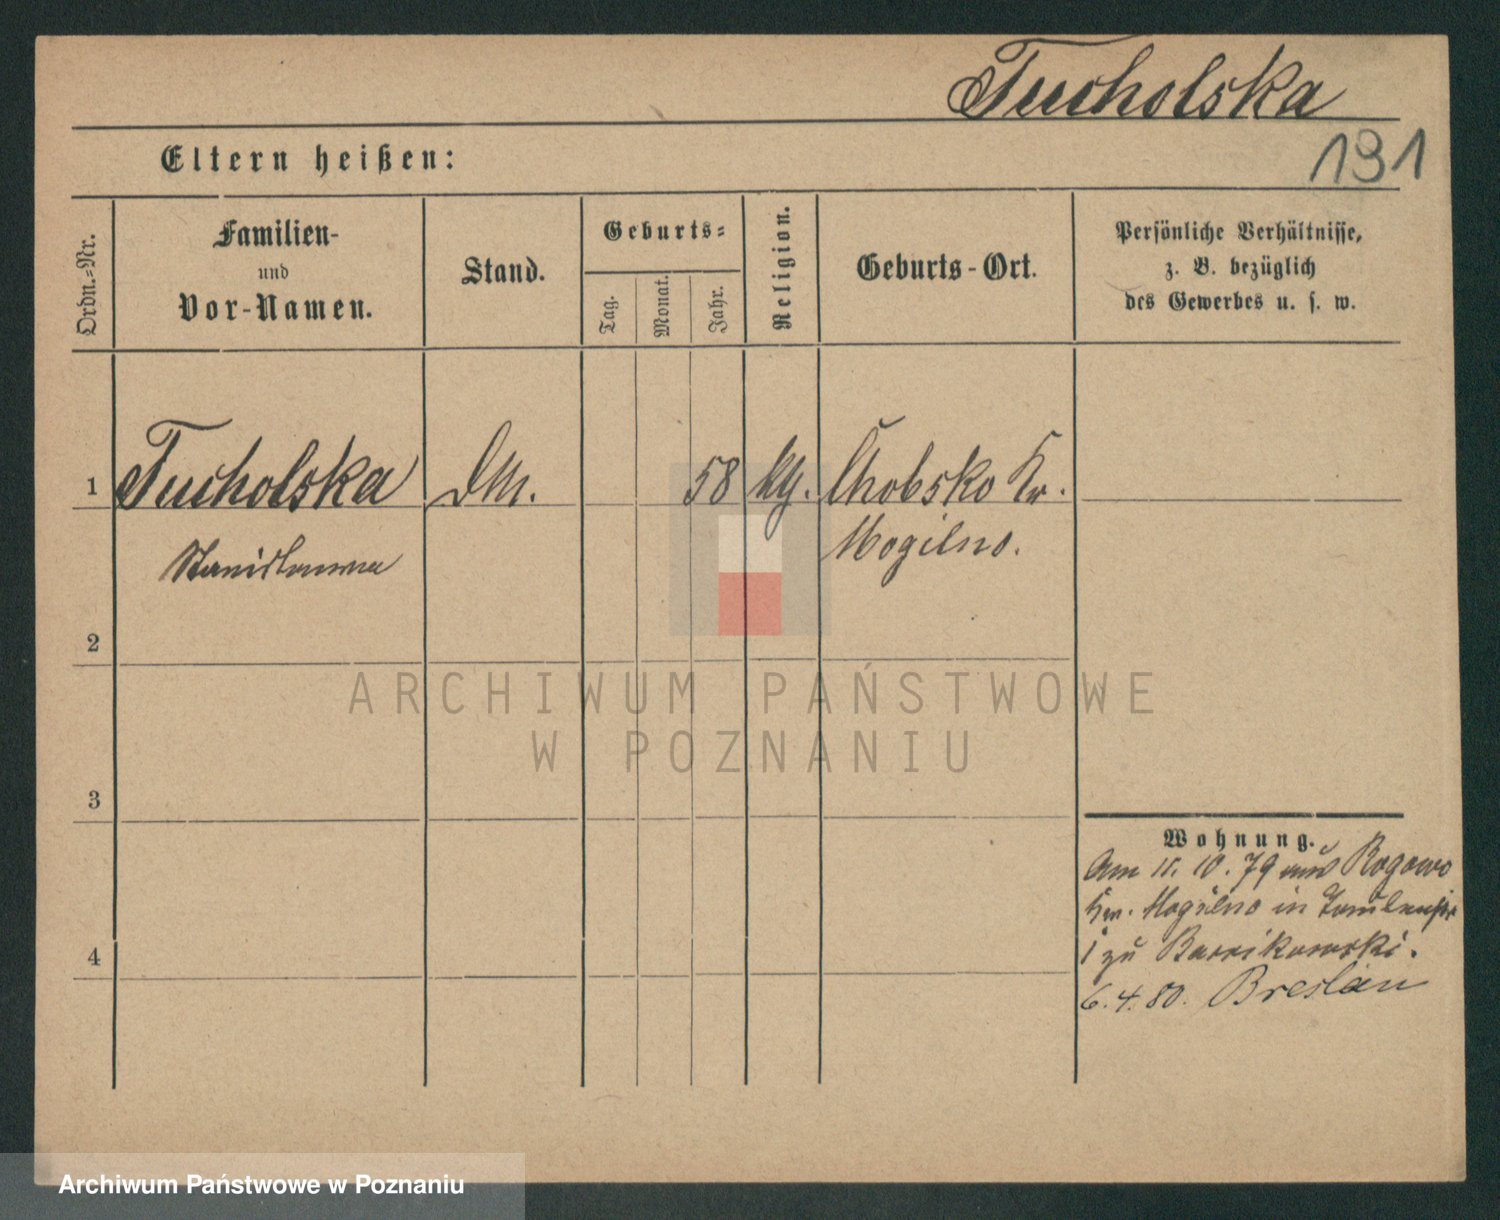 Tucholska
191
Eltern heißen:
Ordn.-Nr.
Familien-
und
Vor-Namen.
Stand.
Geburts-
Tag.
Monat.
Jahr.
Religion.
Geburts-Ort.
Persönliche Verhältnisse,
z. B. bezüglich
des Gewerbes u. s. w.
1 Tucholska 58 Chobsko Kr.
Stanislawa Mogilno.
2
ARCHIWUM PAŃSTWOWE
W POZNANIU
3
Wohnung.
Am 11. 10. 79 aus Rogowo
Kr. Mogilno in
1 zu
4
6. 4. 80. Breslau
Archiwum Państwowe w Poznaniu